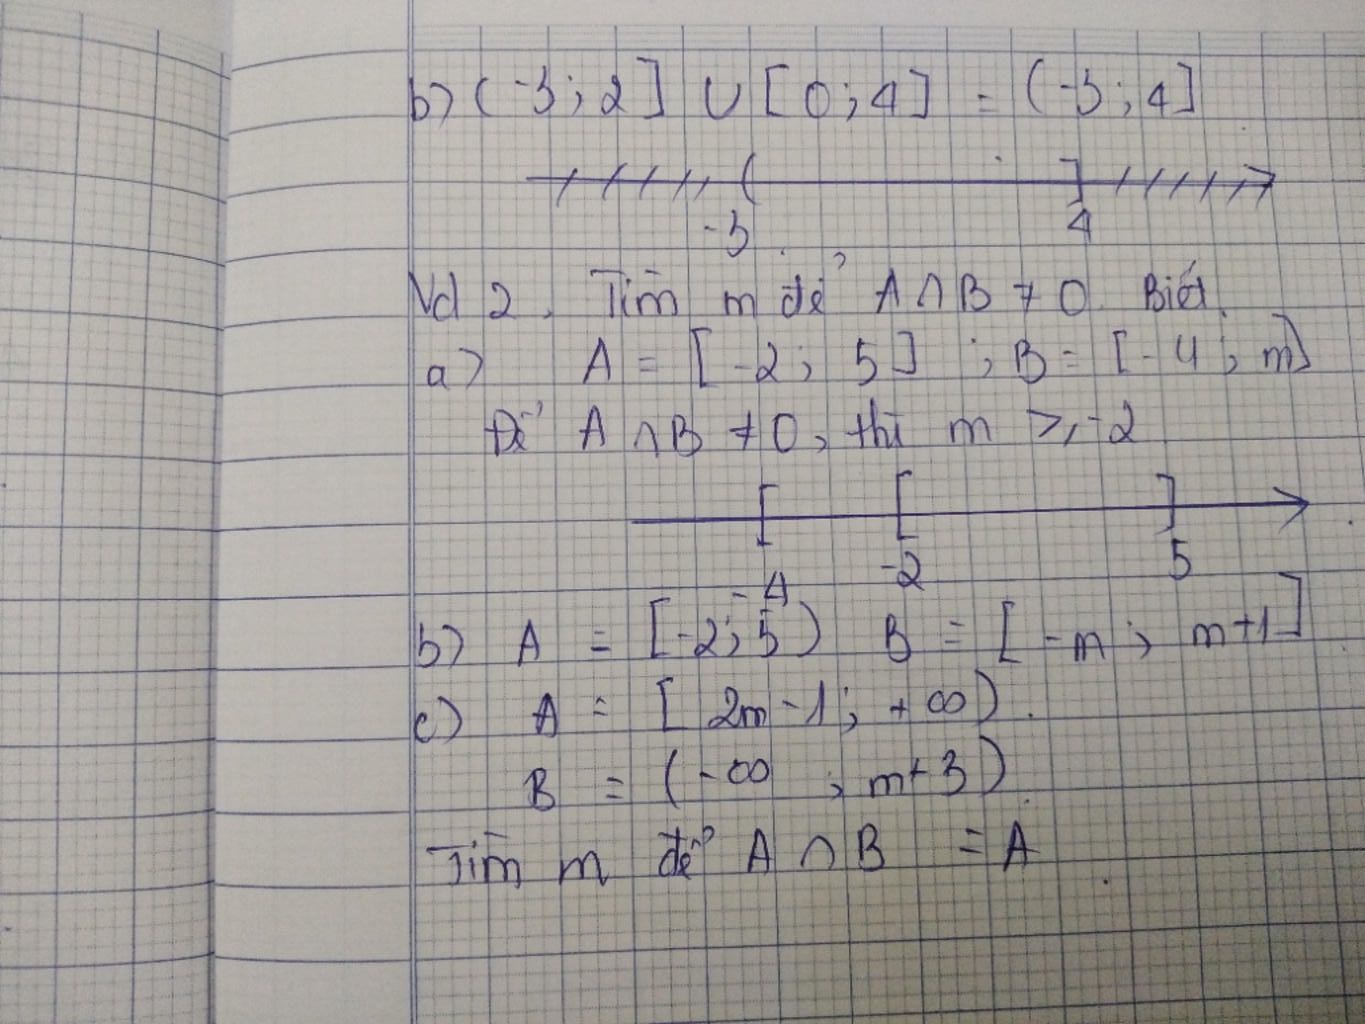 b) (-3; 2] ∪ [0; 4] = (-3; 4]
-3 4
Vd 2. Tìm m để A ∩ B ≠ 0. Biết
a) A = [-2; 5] ; B = [-4; m]
Để A ∩ B ≠ 0, thì m ≥ -2
-4 -2 5
b) A = [-2; 5) B = [-m; m+1]
c) A = [2m-1; +∞).
B = (-∞; m+3)
Tìm m để A ∩ B = A